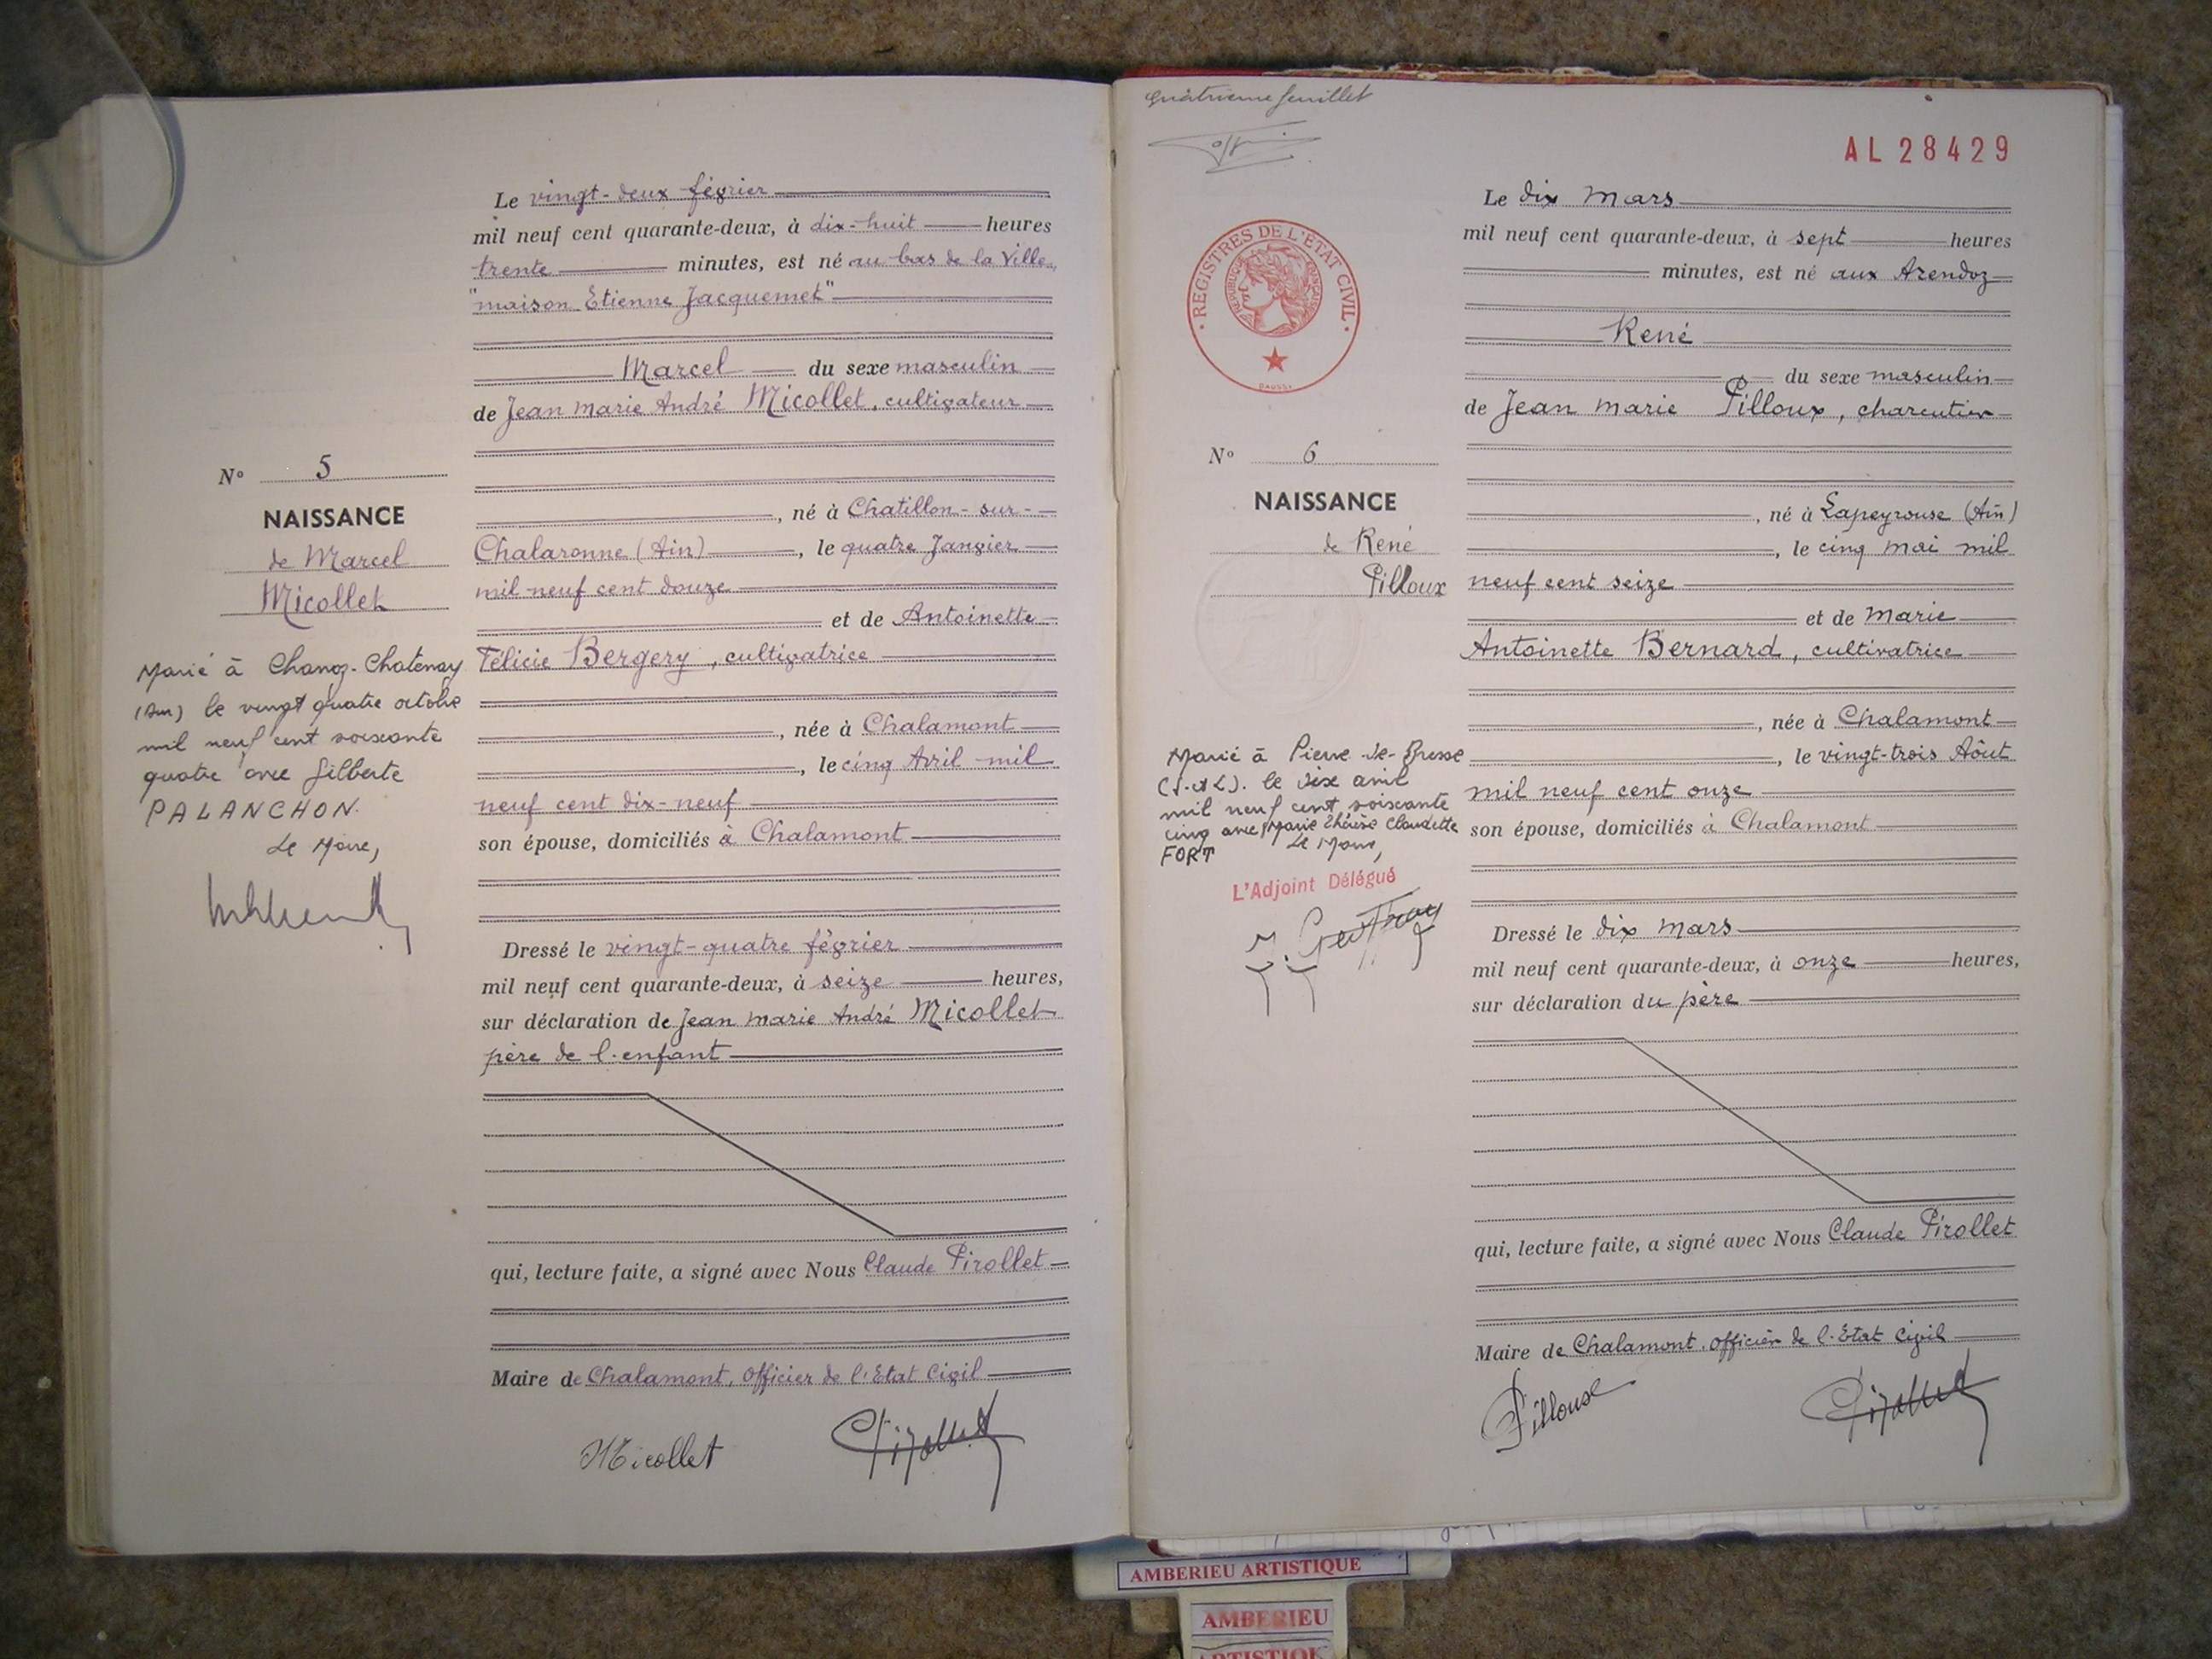 Le vingt-deux février
mil neuf cent quarante-deux, à dix-huit heures
trente minutes, est né au bas de la Ville,
"maison Etienne Jacquemet"
Marcel du sexe masculin
de Jean Marie André Micollet, cultivateur
N° 5
NAISSANCE
de Marcel
Micollet
, né à Chatillon-sur-
Chalaronne (Ain), le quatre Janvier
mil neuf cent douze
et de Antoinette
Félicie Bergery, cultivatrice
, née à Chalamont
, le cinq Avril mil
neuf cent dix-neuf
son épouse, domiciliés à Chalamont
Marié à Chanoz-Chatenay
(Ain) le vingt quatre octobre
mil neuf cent soixante
quatre avec Gilberte
PALANCHON.
Le Maire,
Dressé le vingt-quatre février
mil neuf cent quarante-deux, à seize heures,
sur déclaration de Jean Marie André Micollet
père de l'enfant
qui, lecture faite, a signé avec Nous Claude Pirollet
Maire de Chalamont, Officier de l'Etat Civil
Micollet
Pirollet
quatrième feuillet
AL 28429
REGISTRES DE L'ETAT CIVIL
REPUBLIQUE FRANÇAISE
Le dix Mars
mil neuf cent quarante-deux, à sept heures
minutes, est né aux Arendoz
René
du sexe masculin
de Jean Marie Pilloux, charcutier
N° 6
NAISSANCE
de René
Pilloux
, né à Lapeyrouse (Ain)
, le cinq mai mil
neuf cent seize
et de Marie
Antoinette Bernard, cultivatrice
, née à Chalamont
, le vingt-trois Aôut
mil neuf cent onze
son épouse, domiciliés à Chalamont
Marié à Pierre-de-Bresse
(S.et L). le dix avril
mil neuf cent soixante
cinq avec Marie Thérèse Claudette
FORT Le Maire,
L'Adjoint Délégué
Dressé le dix Mars
mil neuf cent quarante-deux, à onze heures,
sur déclaration du père
qui, lecture faite, a signé avec Nous Claude Pirollet
Maire de Chalamont, Officier de l'Etat Civil
Pilloux
Pirollet
AMBERIEU ARTISTIQUE
AMBERIEU